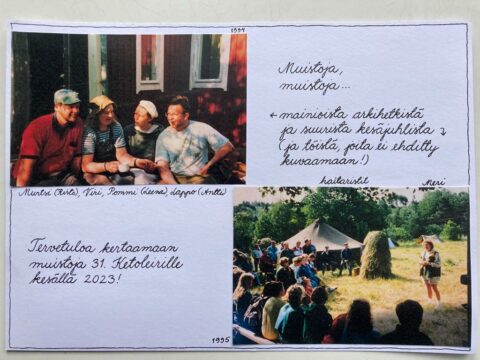 1994
Muistoja,
muistoja...
← mainioista arkihetkistä
ja suurista kesäjuhlista ↴
(ja töistä, joita ei ehditty
kuvaamaan!)
Murtsi (Risto), Viri, Pommi (Leena), Lappo (Antti)
haitaristit Meri
Tervetuloa kertaamaan
muistoja 31. Ketoleirille
kesällä 2023!
1995